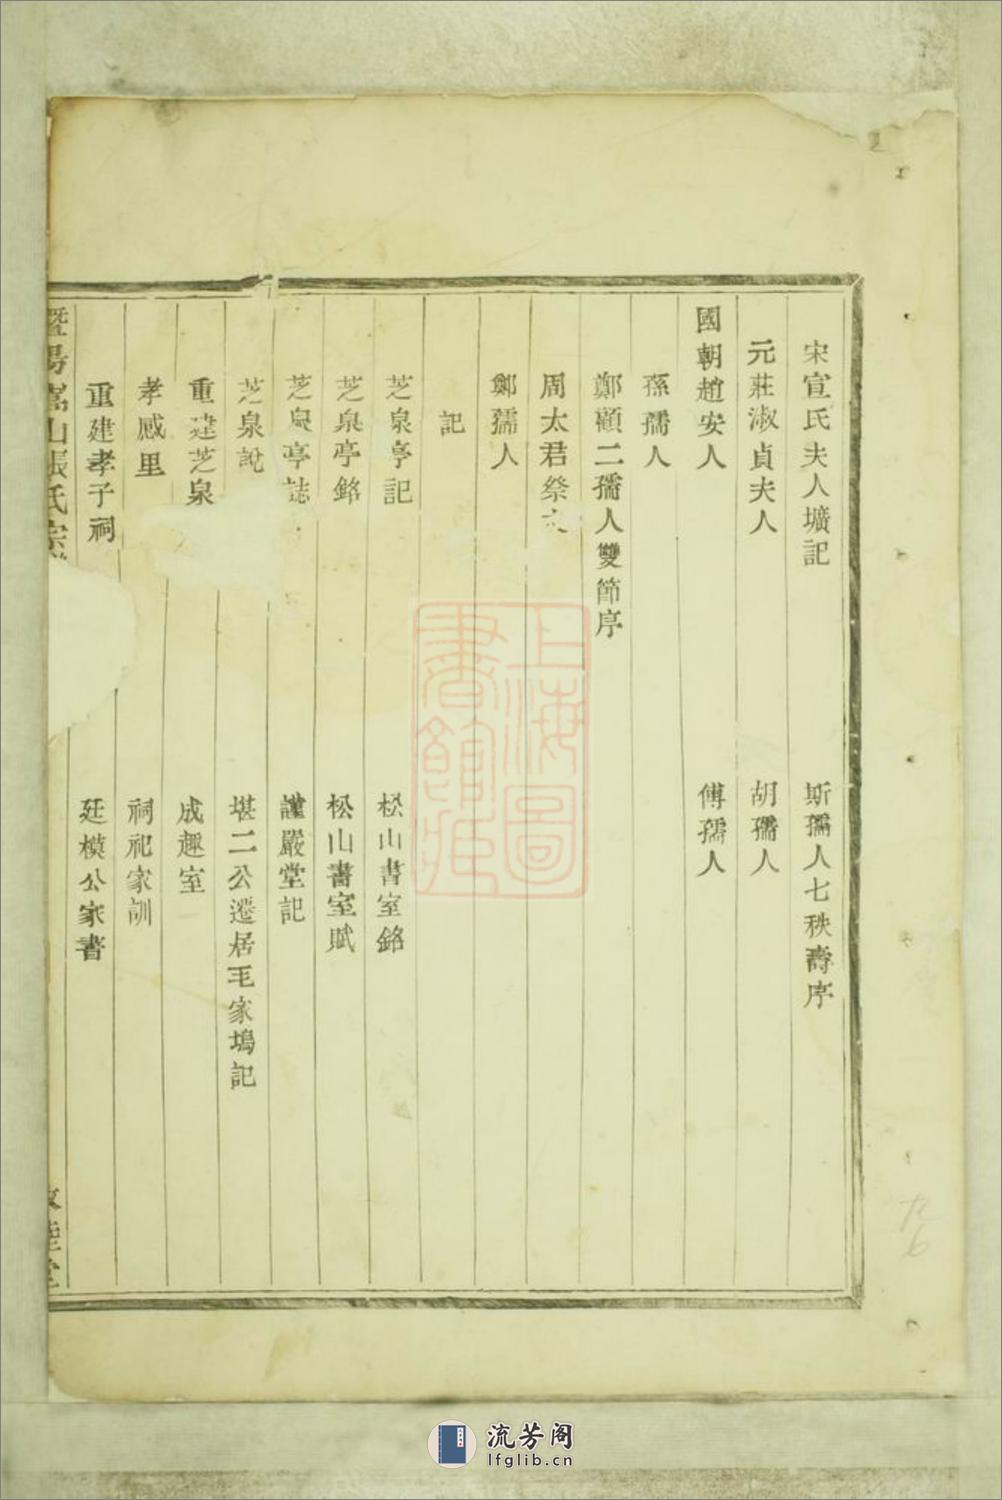 宋宣氏夫人壙記　斯孺人七秩壽序
元莊淑貞夫人　胡孺人
國朝趙安人　傅孺人
孫孺人
鄭顧二孺人雙節序
周太君祭文
鄭孺人
記
芝泉亭記　松山書室銘
芝泉亭銘　松山書室賦
芝泉亭誌　謹嚴堂記
芝泉說　堪二公遷居毛家塢記
重建芝泉　成趣室
孝感里　祠祀家訓
重建孝子祠　廷模公家書
暨陽嵩山張氏宗
上海圖書館藏
流芳阁
lfglib.cn